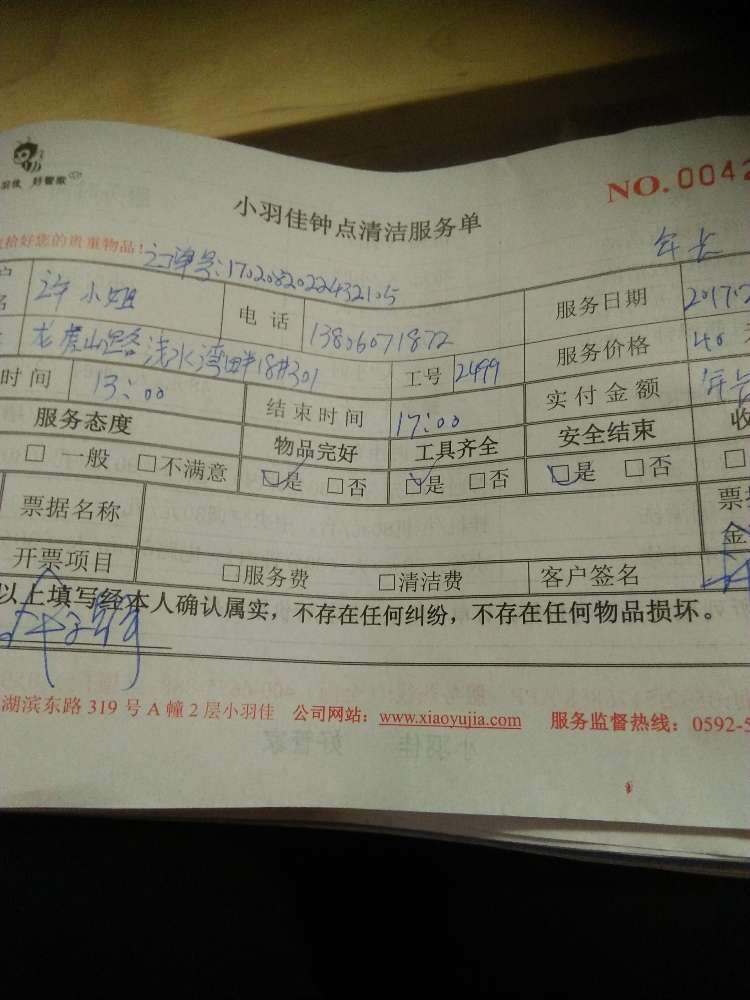 好管家
NO.0042
小羽佳钟点清洁服务单
您的贵重物品!
订单号:1702082022432105
许小姐
电 话
13806071872
服务日期
2017.2
龙虎山路浅水湾畔18#301
工号
2499
服务价格
40
时间
13:00
结束时间
17:00
实付金额
服务态度
物品完好
工具齐全
安全结束
收
□ 一般 □不满意
□是 □否
□是 □否
□是 □否
□
票据名称
票
金
开票项目
□服务费
□清洁费
客户签名
以上填写经本人确认属实，不存在任何纠纷，不存在任何物品损坏。
湖滨东路 319 号 A 幢 2 层小羽佳 公司网站：www.xiaoyujia.com 服务监督热线：0592-5